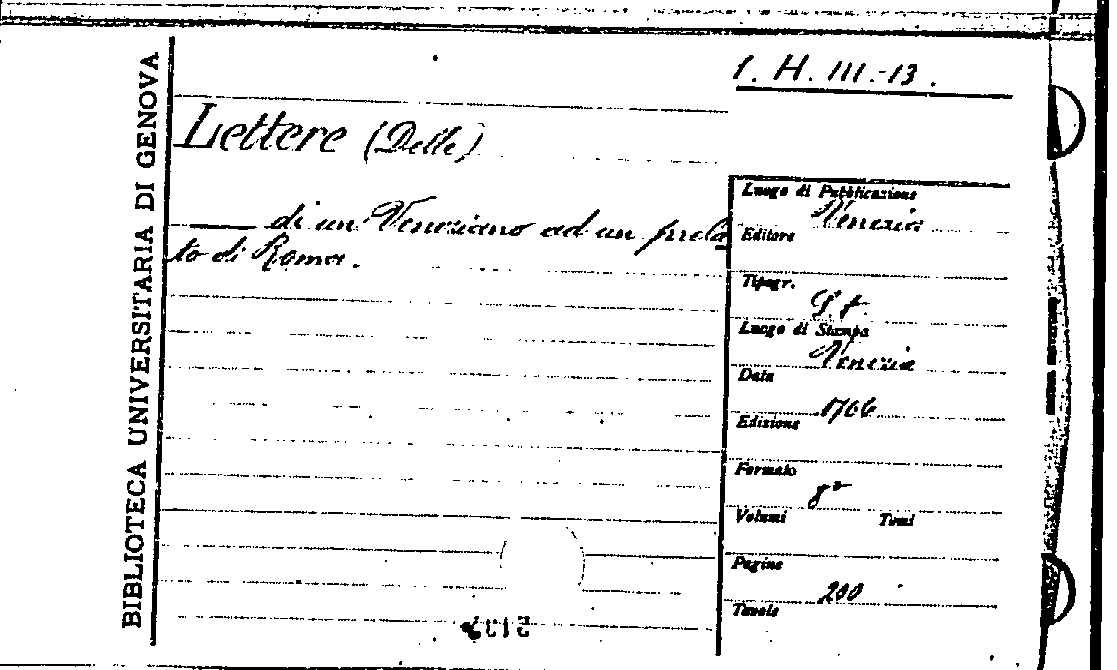 BIBLIOTECA UNIVERSITARIA DI GENOVA
1. H. III.-13.
Lettere (Delle)
—— di un Veneziano ad un prela
to di Roma.
Luogo di Pubblicazione
Venezia
Editore
Tipogr.
Luogo di Stampa
Venezia
Data
1766
Edizione
Formato
8°
Volumi Tomi
Pagine
200
Tavole